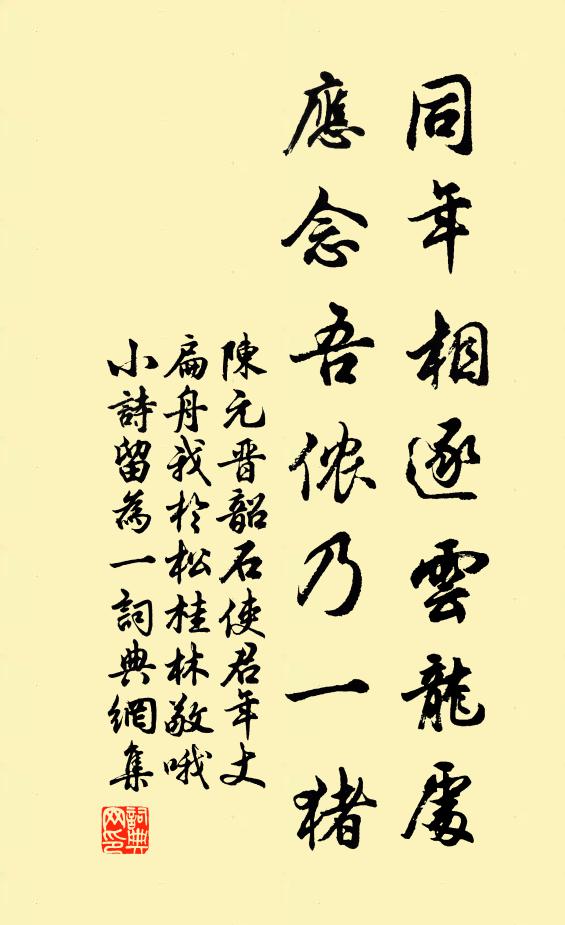 同年相逐雲龍處
應念吾侬乃一猪
陳元晋韶石使君年丈
扁舟我於松桂林敬哦
小詩留為一詞典網集
詞典网印